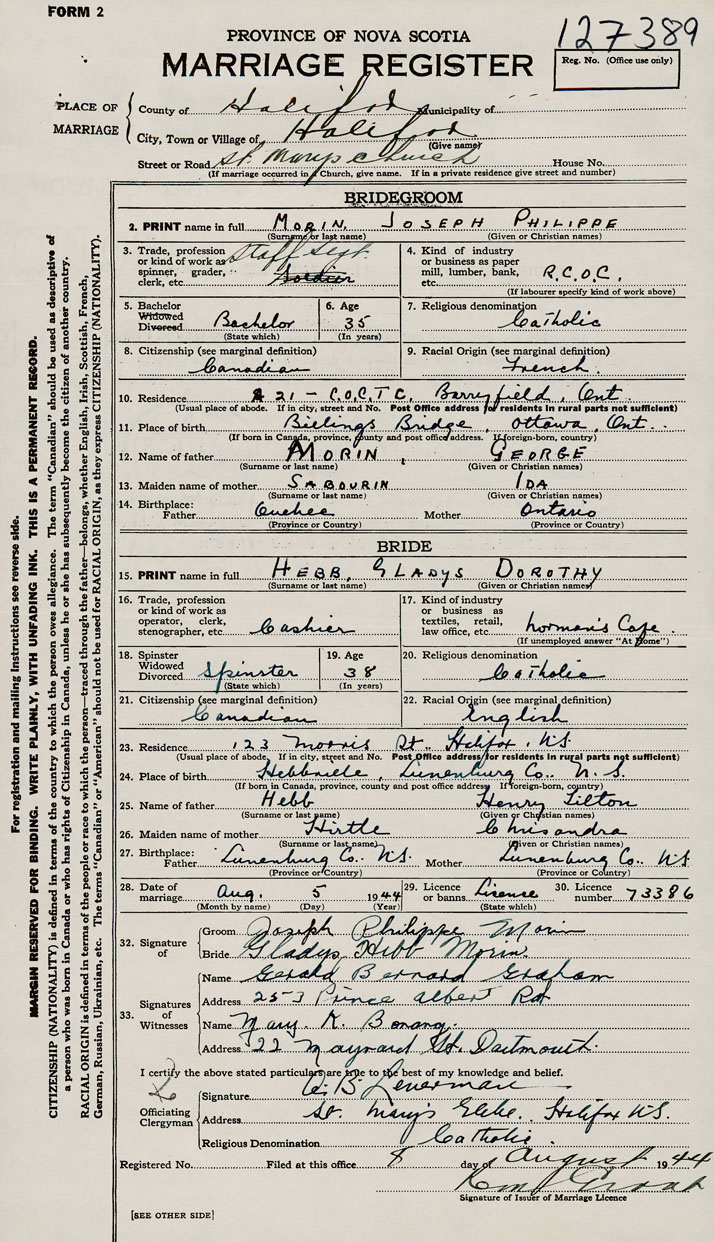 FORM 2
127389
PROVINCE OF NOVA SCOTIA
MARRIAGE REGISTER
Reg. No. (Office use only)
PLACE OF MARRIAGE
County of Halifax Municipality of
City, Town or Village of Halifax
(Give name)
Street or Road St. Mary's Church House No.
(If marriage occurred in Church, give name. If in a private residence give street and number)
BRIDEGROOM
2. PRINT name in full MORIN, JOSEPH PHILIPPE
(Surname or last name) (Given or Christian names)
3. Trade, profession or kind of work as spinner, grader, clerk, etc. Staff Sgt. Soldier
4. Kind of industry or business as paper mill, lumber, bank, etc. R.C.O.C.
(If labourer specify kind of work above)
5. Bachelor Widowed Divorced Bachelor
(State which)
6. Age 35
(In years)
7. Religious denomination Catholic
8. Citizenship (see marginal definition) Canadian
9. Racial Origin (see marginal definition) French.
10. Residence A 21 - C.O.C.T.C. Barryfield, Ont.
(Usual place of abode. If in city, street and No. Post Office address for residents in rural parts not sufficient)
11. Place of birth Billings Bridge, Ottawa, Ont.
(If born in Canada, province, county and post office address. If foreign-born, country)
12. Name of father MORIN, GEORGE
(Surname or last name) (Given or Christian names)
13. Maiden name of mother SABOURIN IDA
(Surname or last name) (Given or Christian names)
14. Birthplace: Father Quebec Mother Ontario
(Province or Country) (Province or Country)
BRIDE
15. PRINT name in full HEBB, GLADYS DOROTHY
(Surname or last name) (Given or Christian names)
16. Trade, profession or kind of work as operator, clerk, stenographer, etc. Cashier
17. Kind of industry or business as textiles, retail, law office, etc. Norman's Cafe.
(If unemployed answer "At Home")
18. Spinster Widowed Divorced Spinster
(State which)
19. Age 38
(In years)
20. Religious denomination Catholic
21. Citizenship (see marginal definition) Canadian
22. Racial Origin (see marginal definition) English
23. Residence 123 Morris St. Halifax, N.S.
(Usual place of abode. If in city, street and No. Post Office address for residents in rural parts not sufficient)
24. Place of birth Hebbville, Lunenburg Co. N.S.
(If born in Canada, province, county and post office address. If foreign-born, country)
25. Name of father Hebb Henry Tilton
(Surname or last name) (Given or Christian names)
26. Maiden name of mother Hirtle Chrisandra
(Surname or last name) (Given or Christian names)
27. Birthplace: Father Lunenburg Co. N.S. Mother Lunenburg Co. N.S.
(Province or Country) (Province or Country)
28. Date of marriage Aug. 5 1944
(Month by name) (Day) (Year)
29. Licence or banns License
(State which)
30. Licence number 73386
32. Signature of
Groom Joseph Philippe Morin
Bride Gladys Hebb Morin.
33. Signatures of Witnesses
Name Gerald Bernard Graham
Address 253 Prince Albert Rd
Name Mary. K. Bonang.
Address 122 Maynard St. Dartmouth.
I certify the above stated particulars are true to the best of my knowledge and belief.
Officiating Clergyman
Signature
Address St. Mary's Glebe. Halifax N.S.
Religious Denomination Catholic.
Registered No. Filed at this office 8 day of August 1944
Signature of Issuer of Marriage Licence
[SEE OTHER SIDE]
For registration and mailing instructions see reverse side.
MARGIN RESERVED FOR BINDING. WRITE PLAINLY, WITH UNFADING INK. THIS IS A PERMANENT RECORD.
CITIZENSHIP (NATIONALITY) is defined in terms of the country to which the person owes allegiance. The term "Canadian" should be used as descriptive of
a person who was born in Canada or who has rights of Citizenship in Canada, unless he or she has subsequently become the citizen of another country.
RACIAL ORIGIN is defined in terms of the people or race to which the person—traced through the father—belongs, whether English, Irish, Scottish, French,
German, Russian, Ukrainian, etc. The terms "Canadian" or "American" should not be used for RACIAL ORIGIN, as they express CITIZENSHIP (NATIONALITY).